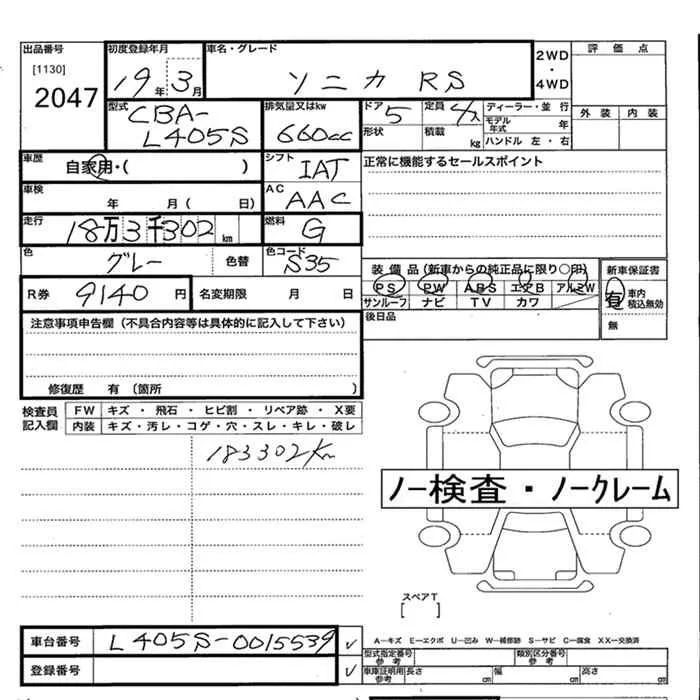 出品番号 初度登録年月 車名・グレード 2WD・4WD 評価点
[1130] 2047 19年3月 ソニカ RS
型式 CBA-L405S 排気量又はkw 660cc ドア 5 形状 定員 積載 kg ディーラー・並行 モデル年式 年 ハンドル 左・右 外装 内装
車歴 自家用・( ) シフト IAT 正常に機能するセールスポイント
車検 年 月( 日) AC AAC
走行 18万3千302km 燃料 G
色 グレー 色替 色コード S35 装備品(新車からの純正品に限り○印) 新車保証書
PS PW ABS エアB アルミW 有 車内積込無効
R券 9140円 名変期限 月 日 サンルーフ ナビ TV カワ
後日品 無
注意事項申告欄(不具合内容等は具体的に記入して下さい)
修復歴 有(箇所 )
検査員記入欄 FW キズ・飛石・ヒビ割・リペア跡・X要
内装 キズ・汚レ・コゲ・穴・スレ・キレ・破レ
183302km
ノー検査・ノークレーム
スペアT
[ ]
車台番号 L405S-0015539 ✓
A—キズ E—エクボ U—凹み W—補修跡 S—サビ C—腐食 XX—交換済
型式指定番号 参考 類別区分番号 参考
登録番号 ✓ 車庫証明用参考 長さ cm 幅 cm 高さ cm